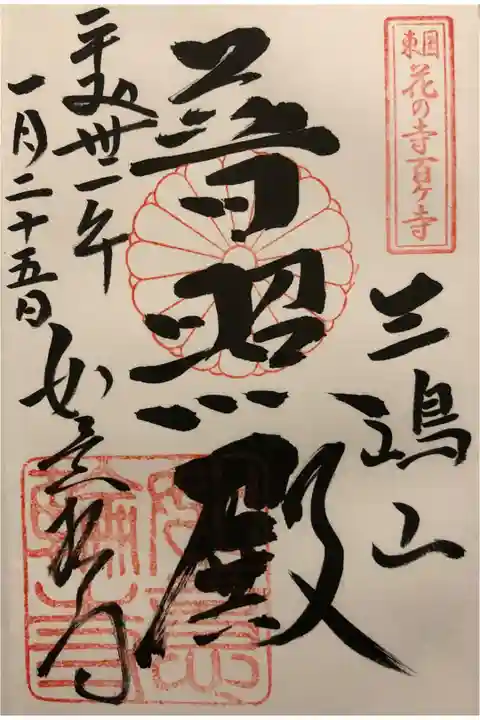 東国花の寺百ヶ寺
三嶋山
普照殿
平成卅一年
一月二十五日
如意輪寺